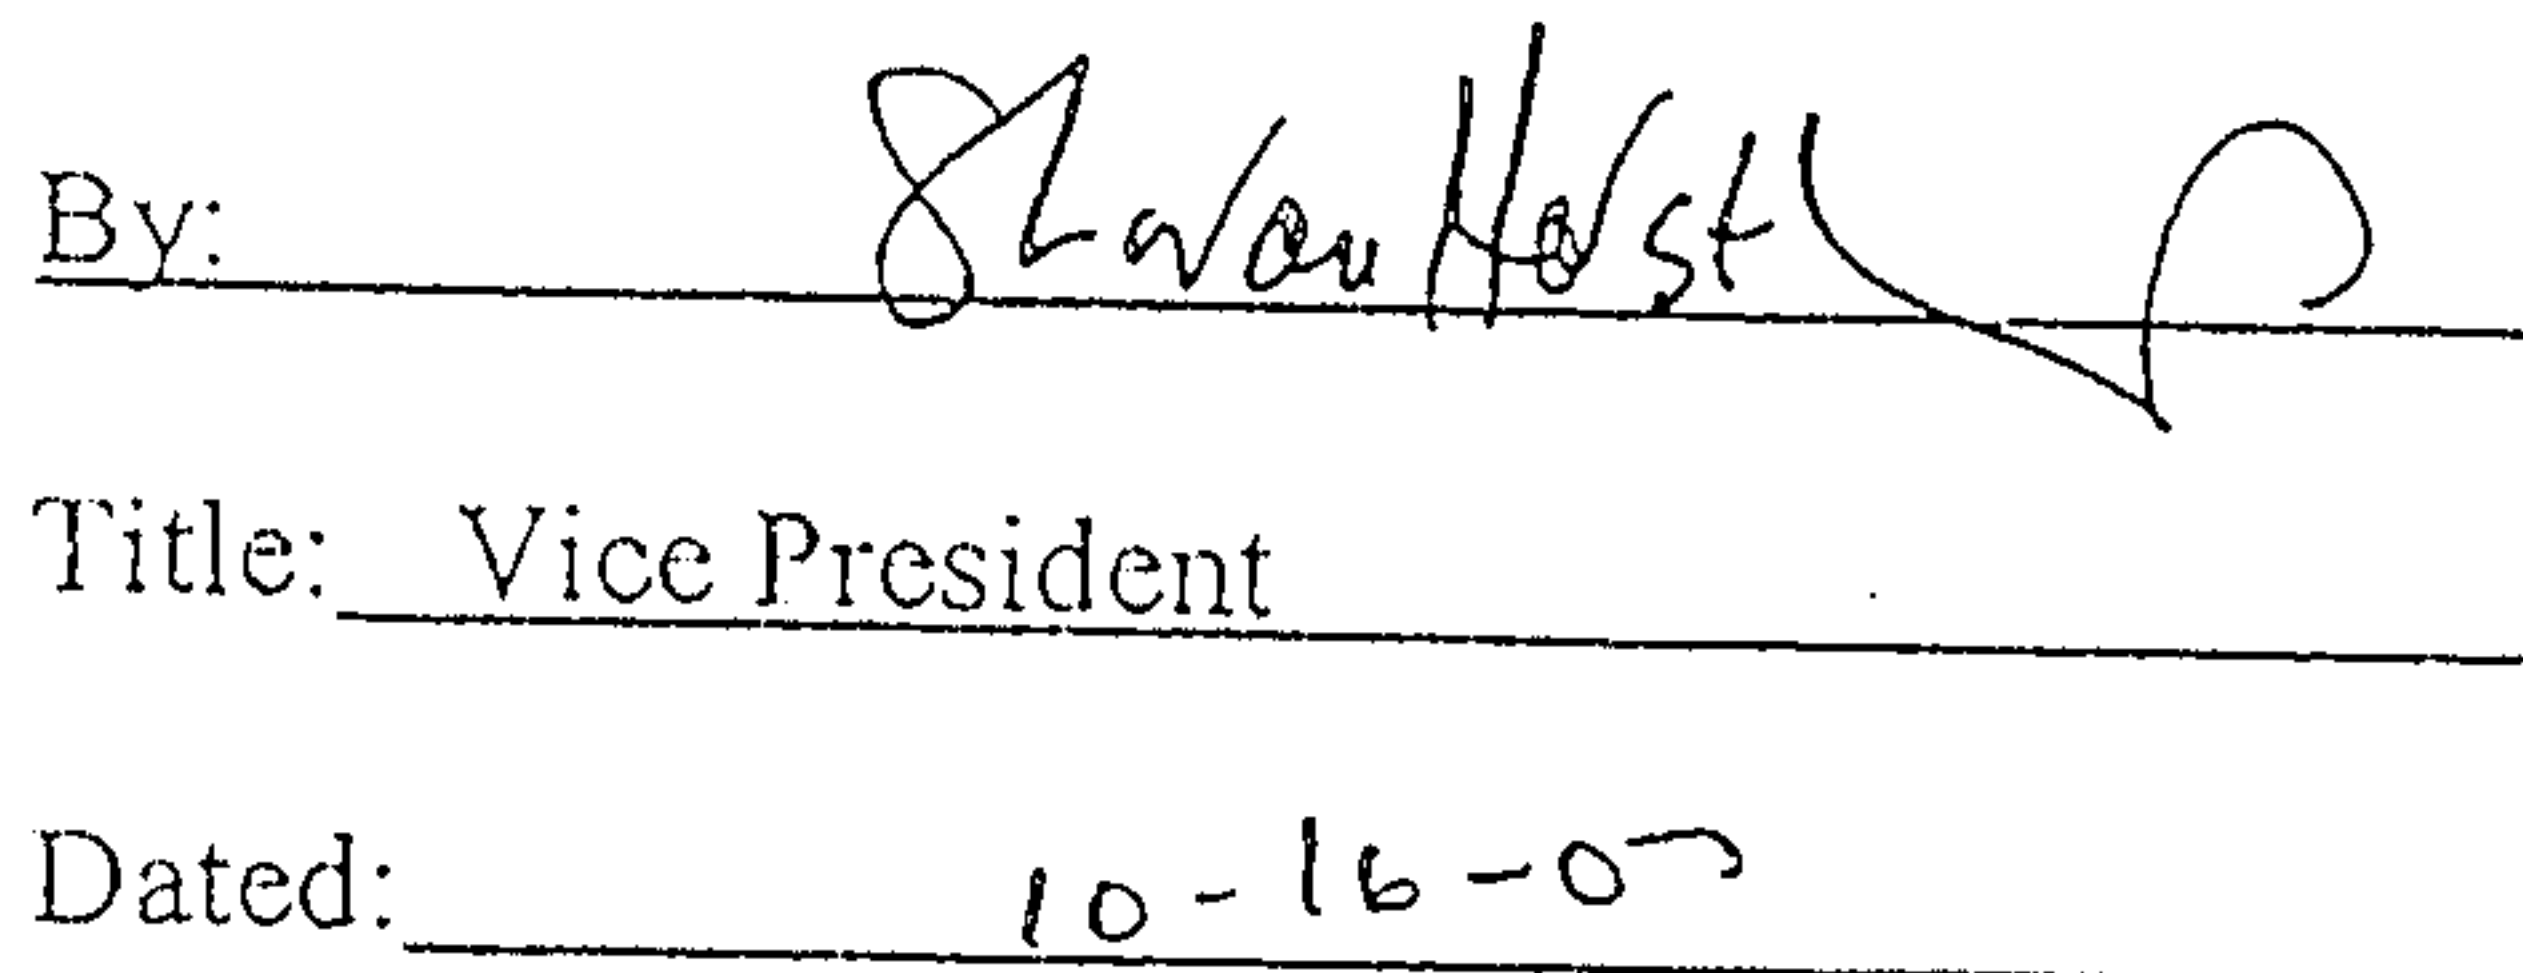 By: Sharon Horst
Title: Vice President
Dated: 10-16-07